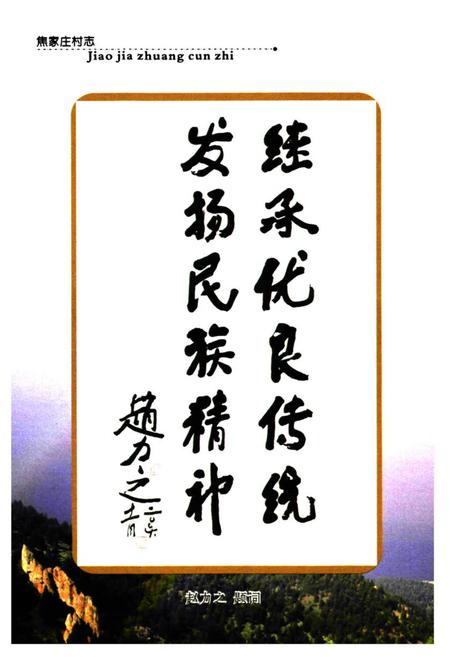 焦家庄村志
Jiao jia zhuang cun zhi
继承优良传统
发扬民族精神
赵力之
二〇〇六
十一月
赵力之 题词